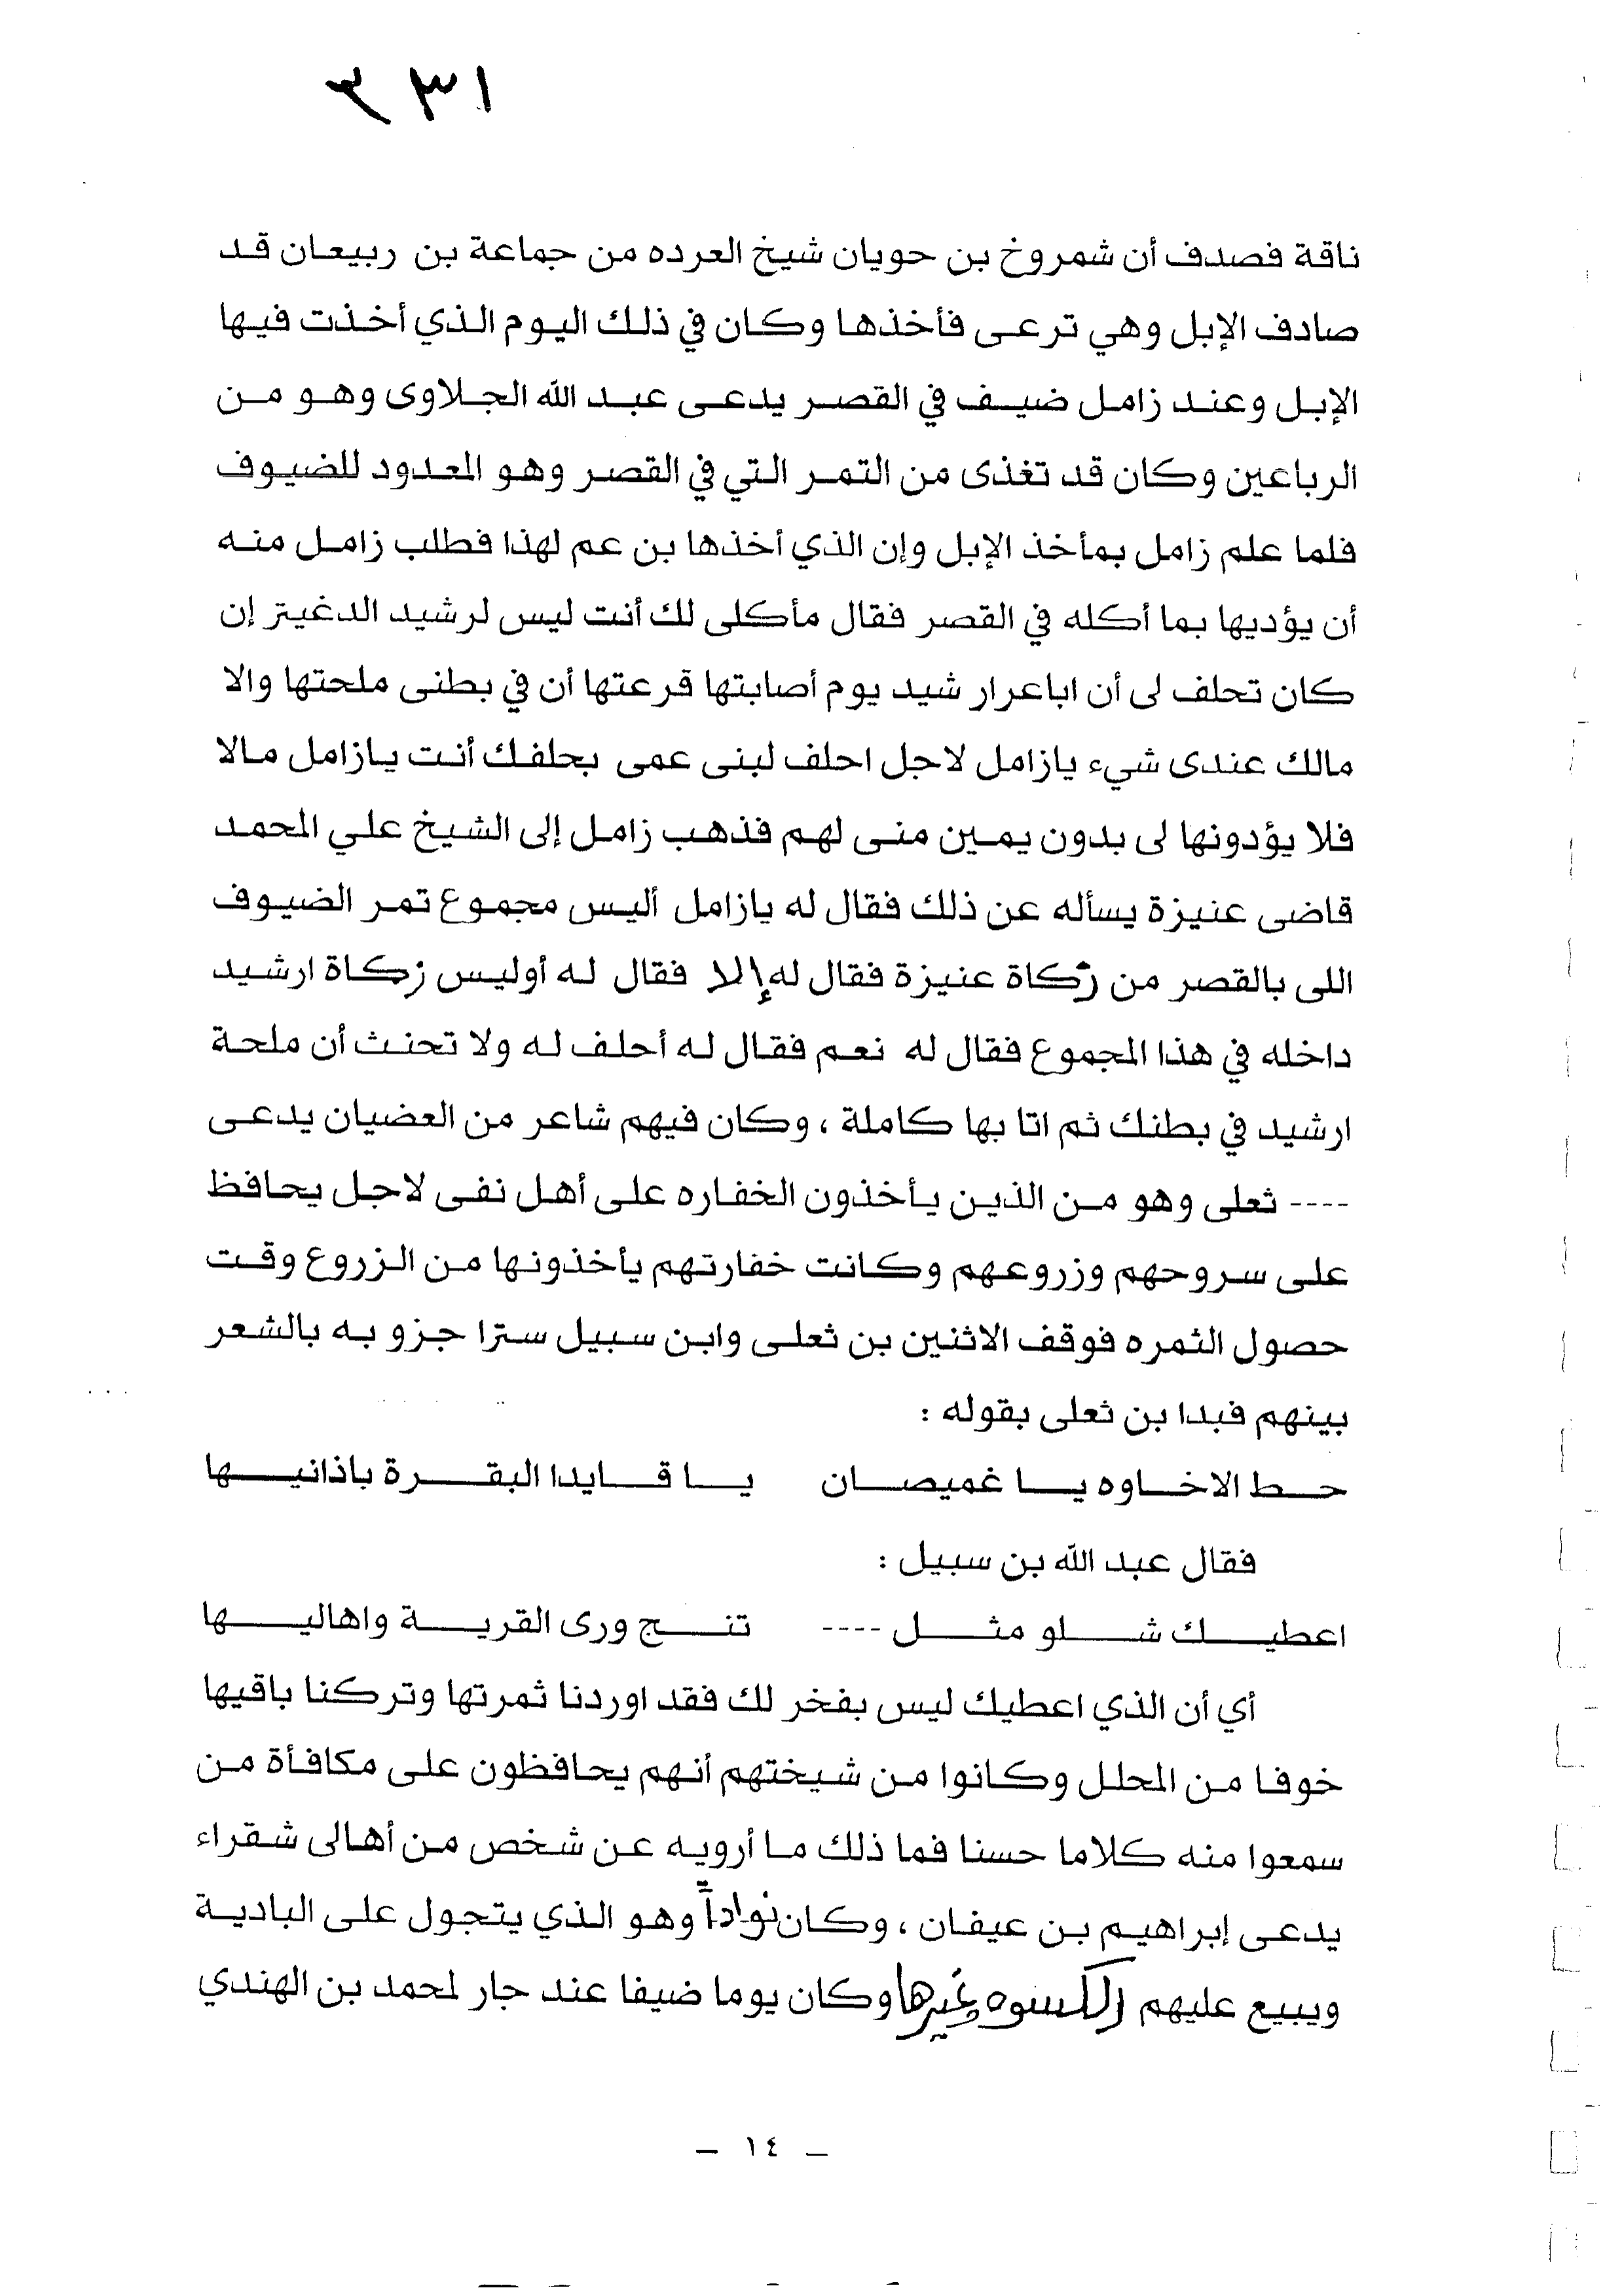 ١٣٣
ناقة فصدف أن شمروخ بن حويان شيخ العرده من جماعة بن ربيعان قد
صادف الإبل وهي ترعى فأخذها وكان في ذلك اليوم الذي أخذت فيها
الإبل وعند زامل ضيف في القصر يدعى عبد الله الجلاوى وهو من
الرباعين وكان قد تغذى من التمر التي في القصر وهو المعدود للضيوف
فلما علم زامل بمأخذ الإبل وإن الذي أخذها بن عم لهذا فطلب زامل منه
أن يؤديها بما أكله في القصر فقال مأكلى لك أنت ليس لرشيد الدغيتر إن
كان تحلف لى أن اباعرار شيد يوم أصابتها قرعتها أن في بطنى ملحتها والا
مالك عندى شيء يازامل لاجل احلف لبنى عمى بحلفك أنت يازامل مالا
فلا يؤدونها لى بدون يمين منى لهم فذهب زامل إلى الشيخ علي المحمد
قاضى عنيزة يسأله عن ذلك فقال له يازامل أليس مجموع تمر الضيوف
اللى بالقصر من زكاة عنيزة فقال له إلا فقال له أوليس زكاة ارشيد
داخله في هذا المجموع فقال له نعم فقال له أحلف له ولا تحنث أن ملحة
ارشيد في بطنك ثم اتا بها كاملة ، وكان فيهم شاعر من العضيان يدعى
---- ثعلى وهو من الذين يأخذون الخفاره على أهل نفى لاجل يحافظ
على سروحهم وزروعهم وكانت خفارتهم يأخذونها من الزروع وقت
حصول الثمره فوقف الاثنين بن ثعلى وابن سبيل سترا جزو به بالشعر
بينهم فبدا بن ثعلى بقوله :
حط الاخاوه يا غميصان يا قايدا البقرة باذانيها
فقال عبد الله بن سبيل :
اعطيك شلو مثل ---- تنج ورى القرية واهاليها
أي أن الذي اعطيك ليس بفخر لك فقد اوردنا ثمرتها وتركنا باقيها
خوفا من المحلل وكانوا من شيختهم أنهم يحافظون على مكافأة من
سمعوا منه كلاما حسنا فما ذلك ما أرويه عن شخص من أهالى شقراء
يدعى إبراهيم بن عيفان ، وكان نواداً وهو الذي يتجول على البادية
ويبيع عليهم الكسوه وغيرها وكان يوما ضيفا عند جار لمحمد بن الهندي
– ١٤ –